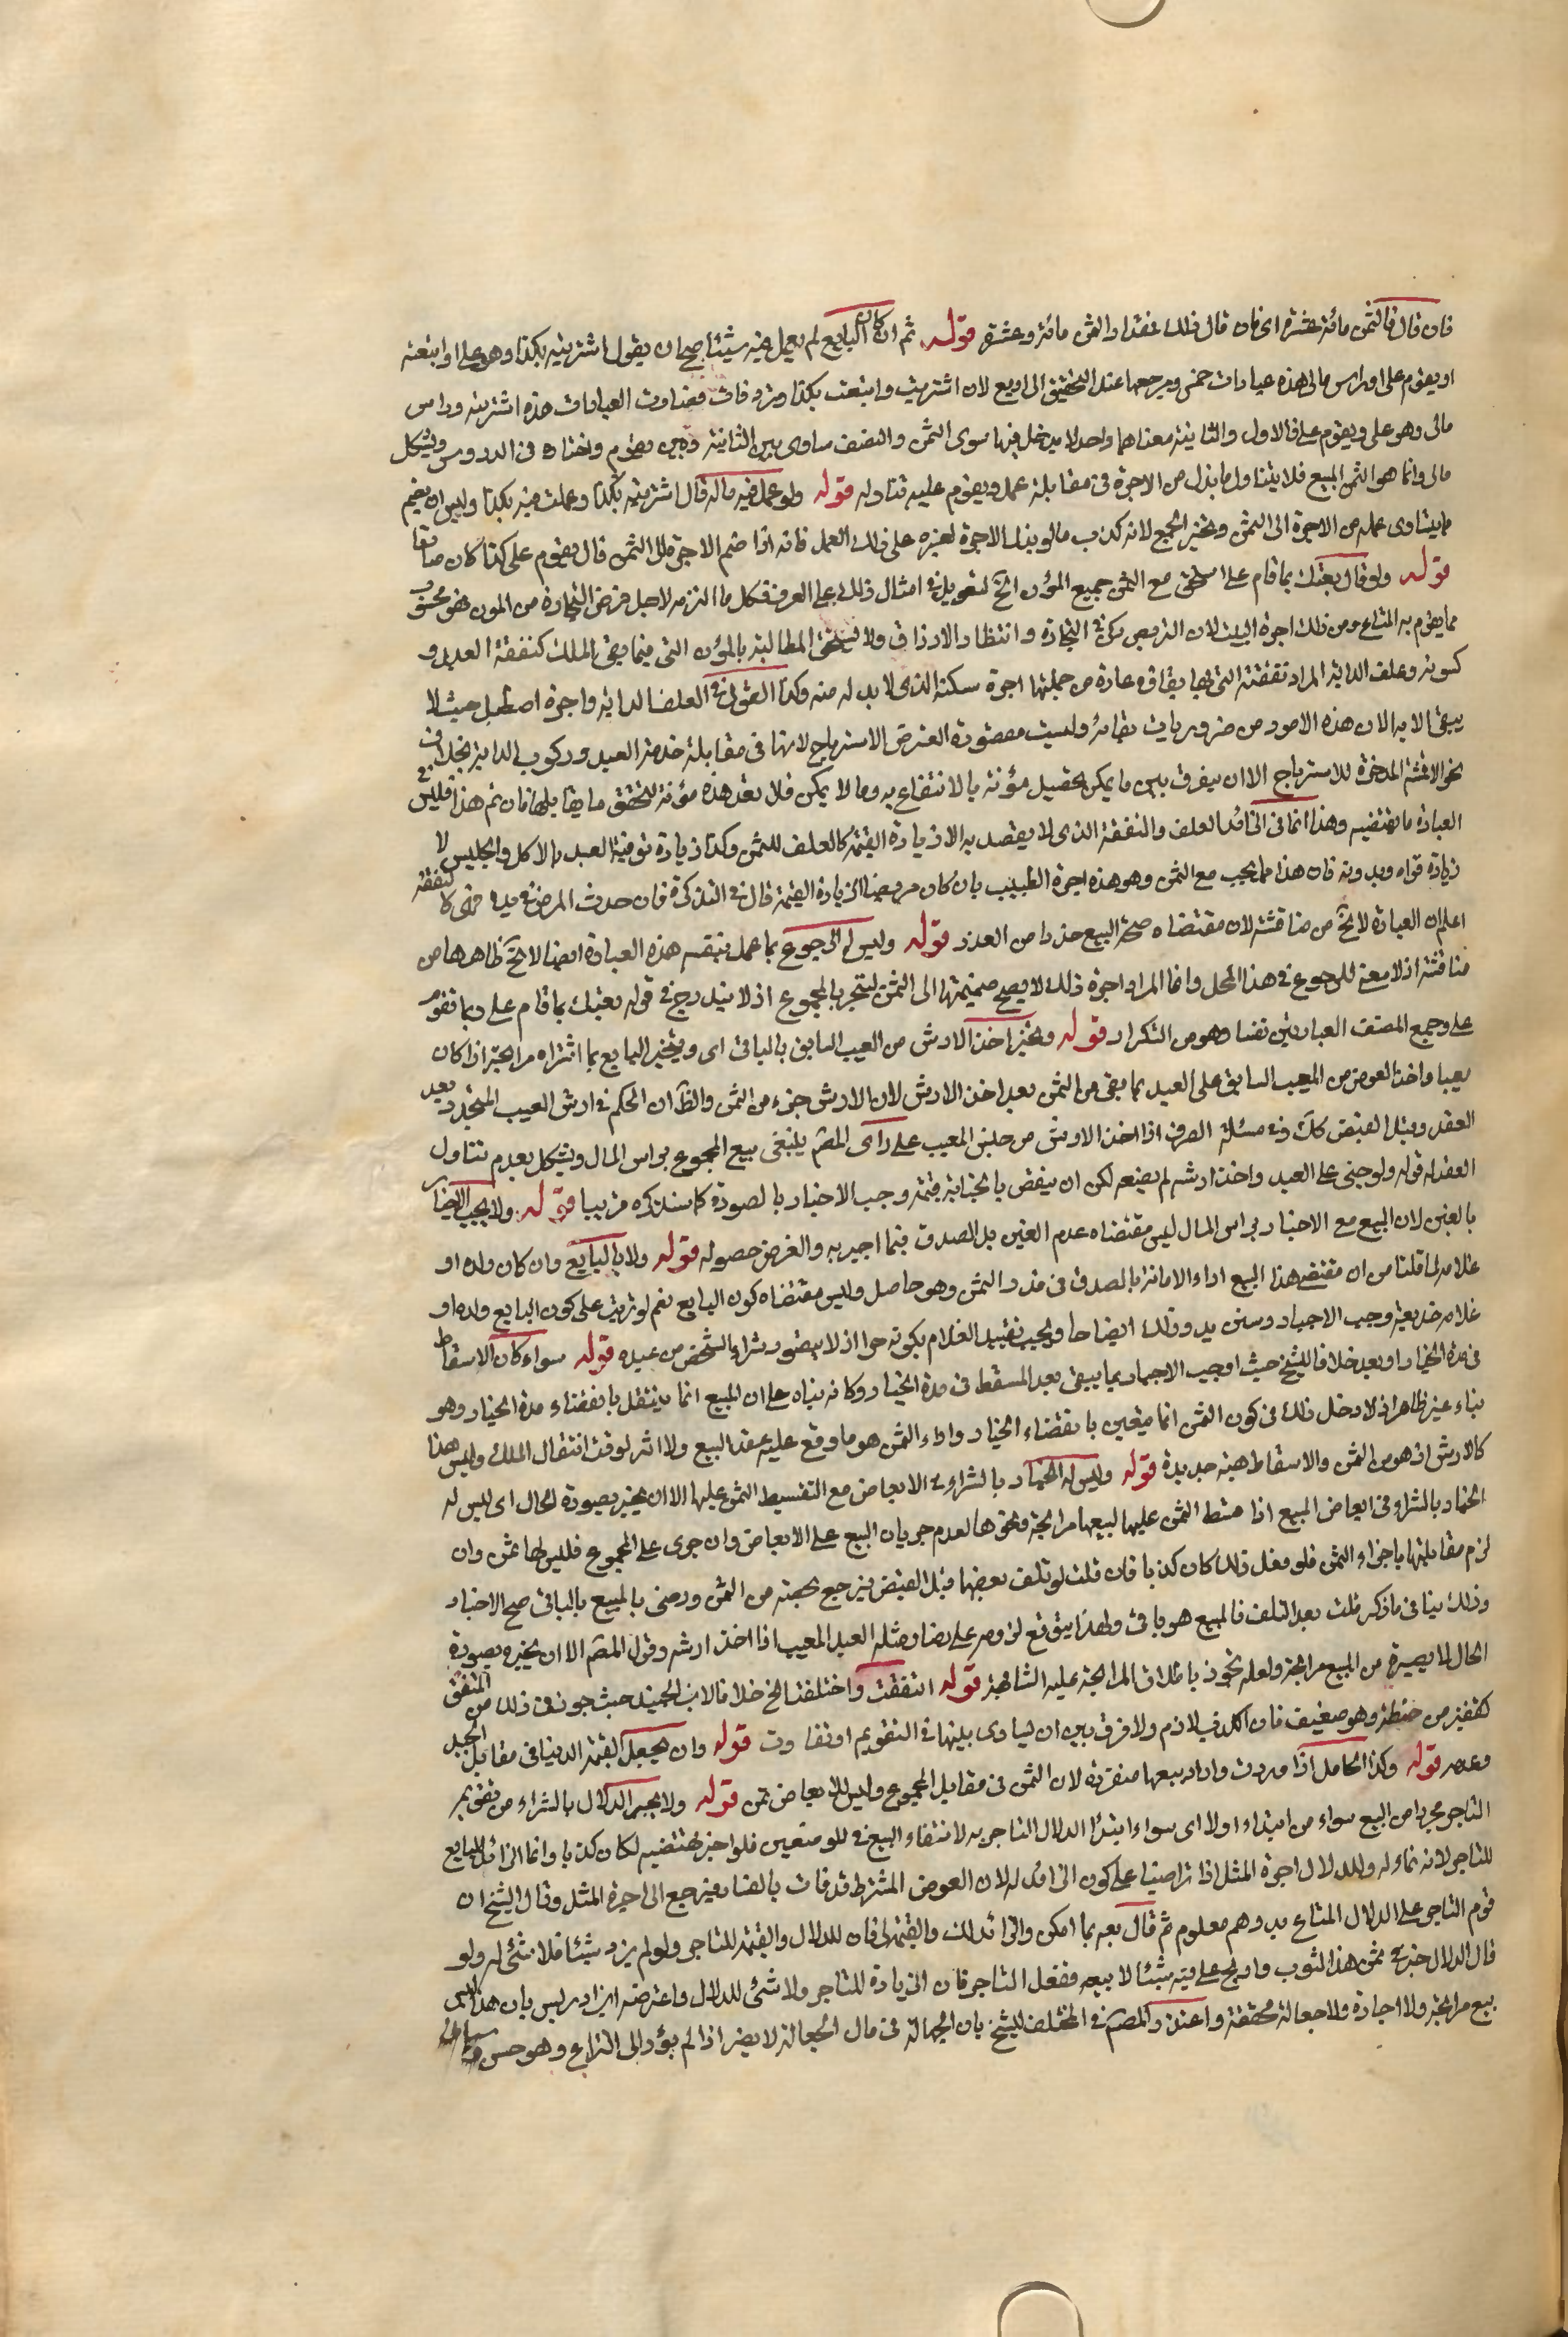 فان قال فالثمن مائة عشرة اى فان قال ذلك عقدا والثمن مائة وعشرة قوله ثم ان كان البايع لم يعمل فيه شيئا صح ان يقول اشتريته بكذا وهو على او ابتعته
او يقوم على او راس مالى هذه عبارات خمس ومرجعها عند التحقيق الى اربع لان اشتريت وابتعت بكذا مترادفان العبارات هذه اشتريته وراس
مالى وهو على ويقوم على فالاول والثانية معناهما واحد لا يدخل فيها سوى الثمن والمصنف ساوى بين الثانية وبين يقوم واختاره فى الدروس ويشكل
مالى وانما هو الثمن المبيع فلا يتناول ما بذل من الاجرة فى مقابلة عمل ويقوم عليه تناوله قوله ولو عمل فيه ماله قال اشتريته بكذا وعملت فيه بكذا وليس ان يضم
ما يساوى عمله من الاجرة الى الثمن ويخبر بالجميع لانه كذب مالو بذل الاجرة لغيره على ذلك العمل فانه اذا ضم الاجرة الى الثمن قال يقوم على كذا كان صادقا
قوله ولو قال بعتك بما قام على استحق مع الثمن جميع المؤن الخ التعويل فى امثال ذلك على العرف فكل ما التزمه لاجل غرض التجارة من المؤن فهو محسوب
مما يقوم به المتاع ومن ذلك اجرة البيت لان التربص ركن فى التجارة وانتظار الارزاق ولا يستحق المطالبة بالمؤن التى فيما يبقى الملك كنفقة العبد و
كسوته وعلف الدابة المراد نفقته التى بها بقاؤه عادة من جملتها اجرة سكنه الذى لا بد له منه وكذا القول فى العلف الدابة واجرة اصطبل حيث لا
يبقى الا به لان هذه الامور من ضروريات بقائه وليست مقصودة لغرض الاسترباح لانها فى مقابلة خدمة العبد وركوب الدابة بخلاف
نحو الاقمشة المدخرة للاسترباح الا ان يفرق بين ما يمكن تحصيل مؤنته بالانتفاع به وما لا يمكن فلا تعد هذه مؤنة لتحقق ما يقابلها فان تم هذا فليس فى
العبارة ما يقتضيه وهذا انما فى الزائد العلف والنفقة الذى لا يقصد به الا زيادة القيمة كالعلف للثمن وكذا زيادة توفية العبد بالاكل والجليس لا
زيادة قواه وبدونه فان هذا مما يحسب مع الثمن وهو هذه اجرة الطبيب بان كان مريضا لزيادة القيمة قال فى التذكرة فان حدث المرض فى يده فهى كالنفقة
اعلم ان العبارة لا تخ من مناقشة لان مقتضاه صحة البيع حذرا من العدد قوله وليس له الرجوع بما عمل بنفسه هذه العبارة ايضا لا تخ ظاهرها من
مناقشة اذ لا معنى للرجوع فى هذا المحل وانما المراد اجرة ذلك لا يصح ضميمتها الى الثمن ليتجر بالمجموع اذ لا يندرج فى قوله بعتك بما قام على وبما تقوم
على وجمع المصنف العبارتين تفننا وهو من التكرار قوله ويخبر اخذ الارش من العيب السابق بالباقى اى ويخبر البايع بما اشتراه مرابحة اذا كان
معيبا واخذ العوض من المعيب السابق على العبد بما بقى من الثمن بعد اخذ الارش لان الارش جزء من الثمن والظ ان الحكم فى ارش العيب المتجدد بعد
العقد وقبل القبض كك وفى مسئلة الصرف اذا اخذ الارش من جنس المعيب على راى المصنف ينبغى بيع المجموع براس المال ويشكل بعدم تناول
العقد له قوله ولو جنى على العبد واخذ ارشه لم يضعه لكن ان ينقص بالجناية قيمته وجب الاخبار بالصورة كما سنذكره قريبا قوله ولا يجب الاخبار
بالغبن لان البيع مع الاخبار براس المال ليس مقتضاه عدم الغبن بل الصدق فيما اخبر به والغرض حصوله قوله ولا بالبايع وان كان ولده او
غلامه لما قلنا من ان مقتضى هذا البيع اداء الامانة بالصدق فى قدر الثمن وهو حاصل وليس مقتضاه كون البايع نعم لو ترتب على كون البايع ولده او
غلامه خديعة وجب الاخبار وسنزيد وذلك ايضاحا ويجب تقييد الغلام بكونه حرا اذ لا يتصور شراء الشخص من عبده قوله سواء كان الاسقاط
فى مدة الخيار او بعده خلافا للشيخ حيث اوجب الاخبار بما يبقى بعد المسقط فى مدة الخيار وكانه بناه على ان المبيع انما ينتقل بانقضاء مدة الخيار وهو
بناء غير ظاهر اذ لا دخل ذلك فى كون الثمن انما يتعين بانقضاء الخيار واداء الثمن هو ما وقع عليه عقد البيع ولا اثر لوقت انتقال الملك وليس هذا
كالارش اذ هو من الثمن والاسقاط هبة جديدة قوله وليس له الاخبار بالشراء فى الابعاض مع التقسيط الثمن عليها الا ان يخبر بصورة الحال اى ليس له
اخبار بالشراء فى ابعاض المبيع اذا قسط الثمن عليها لبيعها مرابحة ونحوها لعدم جريان البيع على الابعاض وان جرى على المجموع فليس لها ثمن وان
لزم مقابلتها باجزاء الثمن فلو فعل ذلك كان كذبا فان قلت لو تلف بعضها قبل القبض فيرجع بحصته من الثمن ورضى بالمبيع بالباقى صح الاخبار
وذلك ينافى ما ذكر قلت بعد التلف فالمبيع هو باق ولهذا يتوقع لزومه على رضاه ومثله العبد المعيب اذا اخذ ارشه وقول المصنف الا ان يخبره بصورة
الحال لا يصيره من البيع مرابحة ولعله تجوز باطلاق المرابحة عليه الشافعية قوله اتفقت واختلفت الخ خلافا لابن الجنيد حيث جوز فى ذلك من المتفق
كقفيز من حنطة وهو ضعيف فان الكذب لازم ولا فرق بين ان يساوى بينها فى التقويم او تفاوت قوله وان يجعل القيمة الدنيا فى مقابل الجيد
وعدمه قوله وكذا الحامل اذا ولدت واراد بيعها منفردة لان الثمن فى مقابل المجموع وليس للابعاض ثمن قوله ولا يخبر الدلال بالشراء من تقويم
التاجر مجردا من البيع سواء من ابتداء او لا اى سواء ابتدا الدلال التاجر به لانتفاء البيع فى الموضعين فلو اخبر بمقتضيه لكان كذبا وانما الزائد للبايع
للتاجر لانه نماء له وللدلال اجرة المثل اذا تراضيا على كون الزائد له لان العوض المشترط قد فات بالفساد فيرجع الى اجرة المثل وقال الشيخ ان
قوم التاجر على الدلال المتاع بدرهم معلوم ثم قال بعه بما امكن والزائد لك والقيمة لى فان للدلال والقيمة للتاجر ولو لم يزد شيئا فلا شئ له ولو
قال الدلال خبرنى ثمن هذا الثوب واربح على فيه شيئا لابيعه ففعل التاجر فان الزيادة للتاجر ولا شئ للدلال واعترضه ابن ادريس بان هذا ليس
بيع مرابحة ولا اجارة ولا جعالة محققة واعتذر المصنف فى المختلف للشيخ بان الجهالة فى مال الجعالة لا يضر اذا لم يؤد الى النزاع وهو حسن